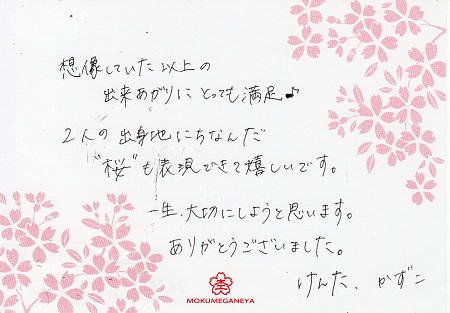 想像していた以上の
出来あがりに とっても満足♪
2人の出身地にちなんだ
"桜"も表現できて嬉しいです。
一生、大切にしようと思います。
ありがとうございました。
けんた、かずこ
MOKUMEGANEYA